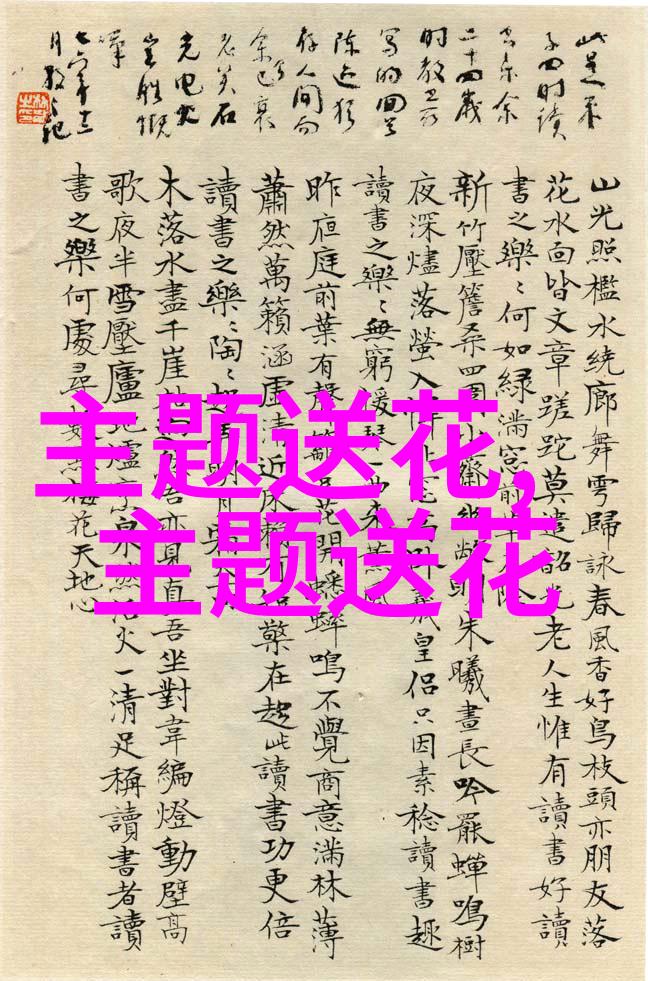 子四时读
书乐余
二十四岁
写的回首
陈迹犹
存人间而
余已衰
老矣石
光电火
岂胜慨
山光照檻水繞廊舞雩歸詠春風香好鳥枝頭亦朋友落
花水面皆文章蹉跎莫遣韶光老人生惟有讀書好讀
書之樂〻何如綠滿窗前草不除
新竹壓簷桑四圍小齋幽敞明朱曦晝長吟罷蟬鳴樹
夜深燼落螢入幃北窗高卧羲皇侶只因素稔讀書趣
讀書之樂〻無窮瑤琴一曲來薰風
昨夜庭前葉有聲籬豆花開蟋蟀鳴不覺商意滿林薄
蕭然萬籟涵虛清近床賴有短檠在趁此讀書功更倍
讀書之樂〻陶〻起弄明月
木落水盡千崖枯迥然吾亦見真吾坐對韋編燈動壁高
歌夜半雪壓廬地爐烹活火一清足稱讀書者讀
書之樂何處尋數點梅花天地心
主题送花,
主题送花